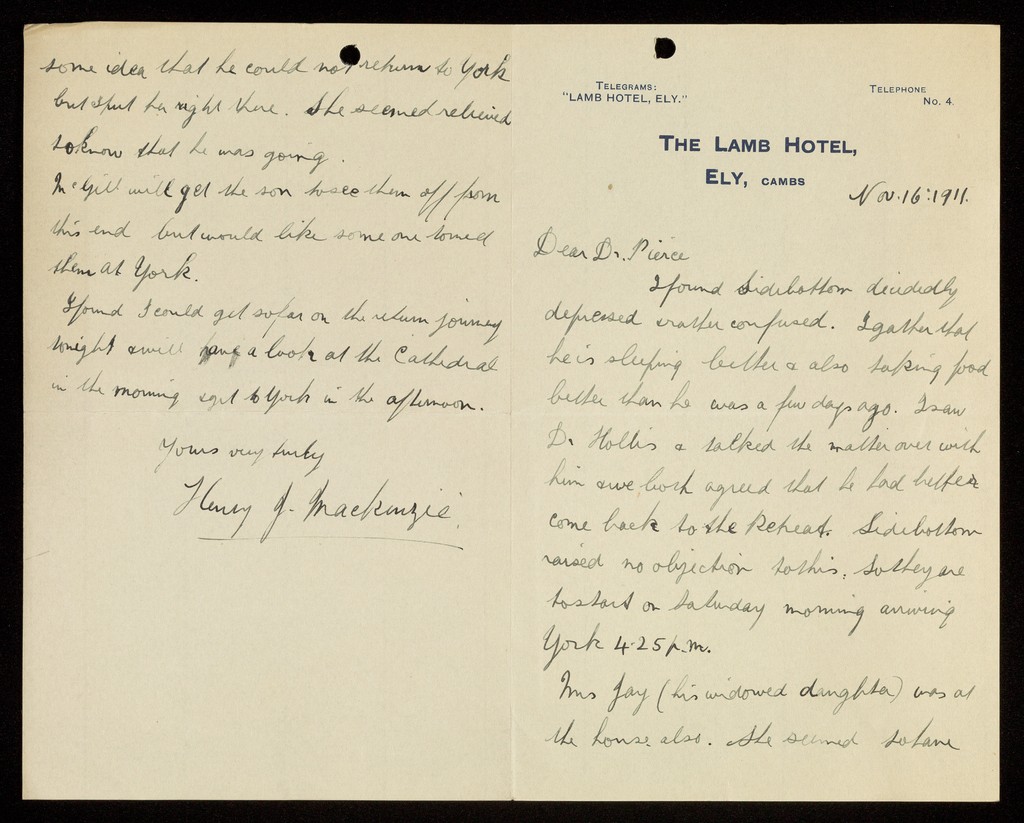 TELEGRAMS:
"LAMB HOTEL, ELY."
TELEPHONE
No. 4.
THE LAMB HOTEL,
ELY, CAMBS
Nov. 16: 1911.
Dear Dr. Pierce
I found Sidebottom decidedly
depressed & rather confused. I gather that
he is sleeping better & also taking food
better than he was a few days ago. I saw
Dr Hollis & talked the matter over with
him & we both agreed that he had better
come back to the Retreat. Sidebottom
raised no objection to this. So they are
to start on Saturday morning arriving
York 4.25 p.m.
Mrs Jay (his widowed daughter) was at
the house also. She seemed to have
some idea that he could not return to York
but I put her right there. She seemed relieved
to know that he was going.
McGill will get the son to see them off from
this end but would like some one to meet
them at York.
I found I could get so far on the return journey
tonight & will have a look at the Cathedral
in the morning & get to York in the afternoon.
Yours very truly
Henry J. Mackenzie.